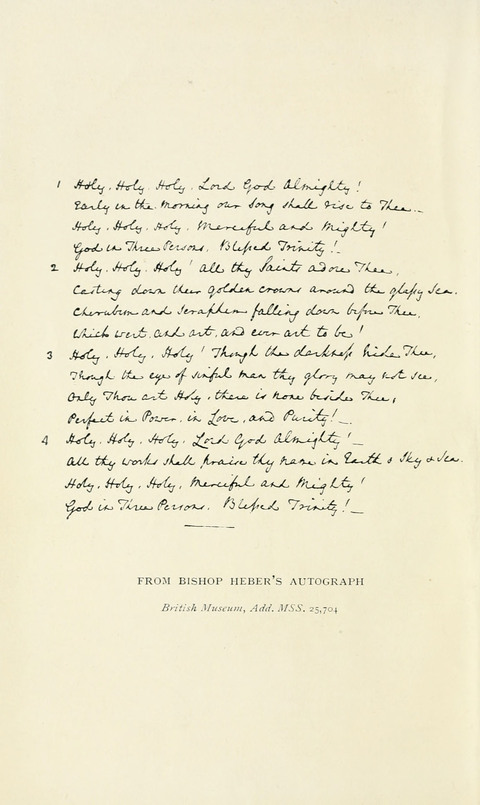 1 Holy, Holy, Holy, Lord God Almighty!
Early in the morning our Song shall rise to Thee _
Holy, Holy, Holy. Merciful and Mighty!
God in Three Persons. Blessed Trinity! _
2 Holy, Holy, Holy! All thy Saints adore Thee,
Casting down their golden crowns around the glassy Sea.
Cherubim and Seraphim falling down before Thee,
Which wert and art, and ever art to be!
3 Holy, Holy, Holy! Though the darkness hide Thee,
Though the eye of sinful man thy glory may not see,
Only Thou art Holy, there is none beside Thee,
Perfect in Power, in Love, and Purity! _
4 Holy, Holy, Holy, Lord God Almighty! _
All thy works shall praise thy name in Earth & Sky & Sea.
Holy, Holy, Holy, Merciful and Mighty!
God in Three Persons. Blessed Trinity! _
FROM BISHOP HEBER'S AUTOGRAPH
British Museum, Add. MSS. 25,704